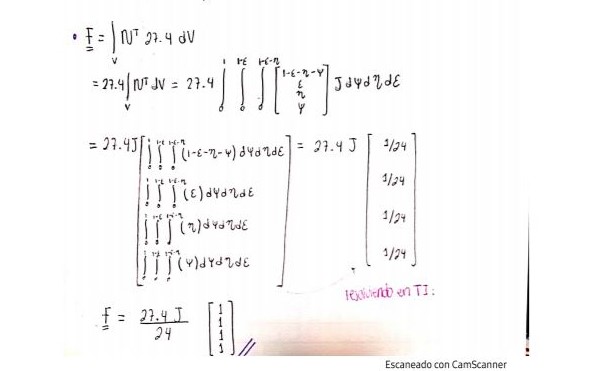 • f = ∫v Nᵀ 27.4 dV
= 27.4 ∫v Nᵀ dV = 27.4 ∫₀¹ ∫₀^(1-ε) ∫₀^(1-ε-η) [1-ε-η-ψ; ε; η; ψ] J dψ dη dε
= 27.4 J [ ∫₀¹ ∫₀^(1-ε) ∫₀^(1-ε-η) (1-ε-η-ψ) dψ dη dε = 27.4 J [ 1/24
∫₀¹ ∫₀^(1-ε) ∫₀^(1-ε-η) (ε) dψ dη dε 1/24
∫₀¹ ∫₀^(1-ε) ∫₀^(1-ε-η) (η) dψ dη dε 1/24
∫₀¹ ∫₀^(1-ε) ∫₀^(1-ε-η) (ψ) dψ dη dε ] 1/24 ]
resolviendo en TI:
f = 27.4 J / 24 [1; 1; 1; 1] //
Escaneado con CamScanner